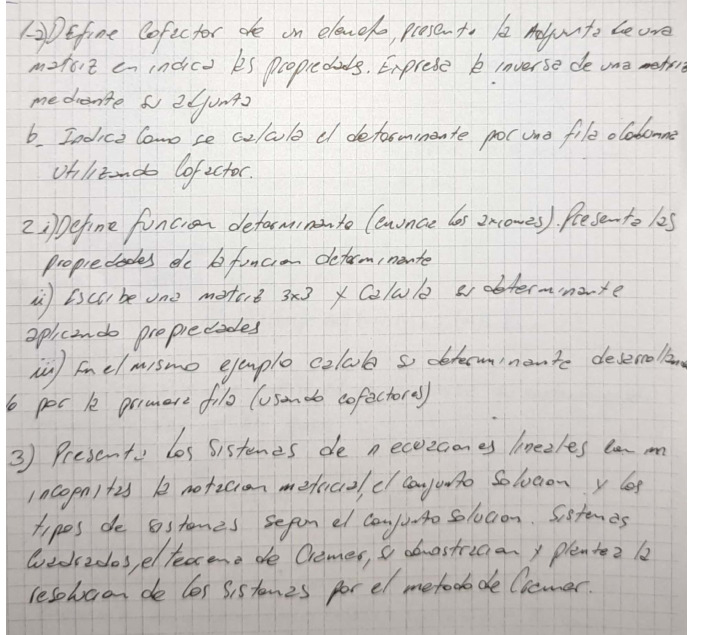 1-a) Define Cofactor de un elemento, presenta la Adjunta de una
matriz en indica las propiedads. Expresa la inversa de una matriz
mediante su adjunta
b_ Indica Como se calcula el determinante por una fila o Columna
Utilizando Cofactor.
2 i) Define función determinante (enuncie los axiomas). Presenta las
propiedades de la funcion determinante
ii) Escribe una matriz 3x3 y Calcula su determinante
aplicando propiedades
iii) En el mismo ejemplo calcula su determinante desarrollando
lo por la primera fila (usando cofactores)
3) Presenta Los Sistemas de n ecuaciones lineales con m
incognitas la notacion matricial, el conjunto Solucion y los
tipos de sistemas segun el conjunto solucion. Sistemas
Cuadrados, el teorema de Cramer, su demostracion y plantea la
resolucion de los Sistemas por el metodo de Cramer.